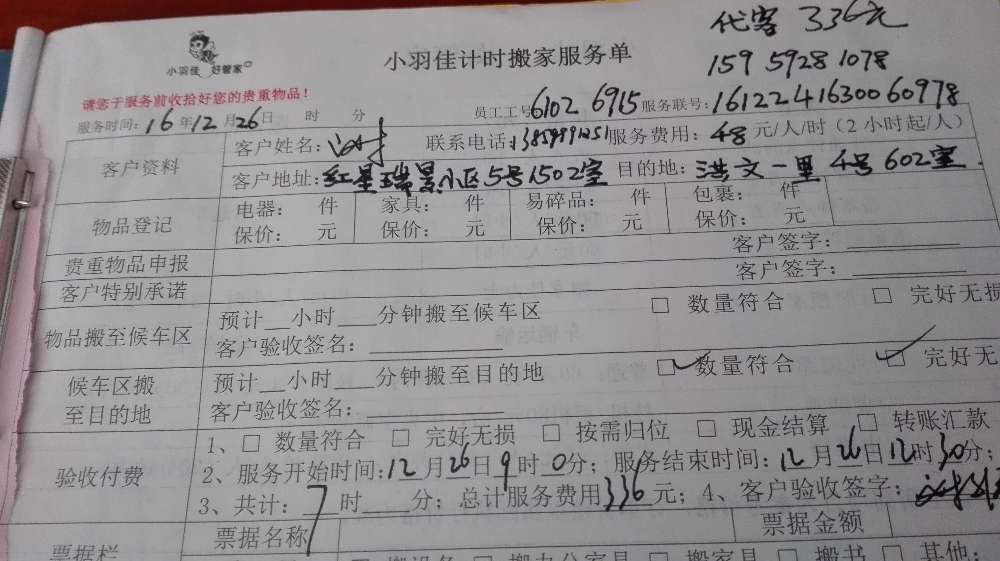 代客 336元
159 5928 1078
小羽佳 好管家
小羽佳计时搬家服务单
请您于服务前收拾好您的贵重物品!
服务时间: 16 年 12 月 26 日 时 分 员工工号 6102 6915 服务联号: 1612241630060978
客户资料
客户姓名: 联系电话: 服务费用: 48 元/人/时 (2 小时起/人)
客户地址: 红星瑞景小区5号1502室 目的地: 洪文一里 4号 602室
物品登记
电器: 件 家具: 件 易碎品: 件 包裹: 件
保价: 元 保价: 元 保价: 元 保价: 元
贵重物品申报 客户签字:
客户特别承诺 客户签字:
物品搬至候车区
预计 小时 分钟搬至候车区 □ 数量符合 □ 完好无损
客户验收签名:
候车区搬
至目的地
预计 小时 分钟搬至目的地 ☑ 数量符合 ☑ 完好无
客户验收签名:
验收付费
1、□ 数量符合 □ 完好无损 □ 按需归位 □ 现金结算 □ 转账汇款
2、服务开始时间: 12 月 26 日 9 时 0 分; 服务结束时间: 12 月 26 日 12 时 30 分;
3、共计: 7 时 分; 总计服务费用 336 元; 4、客户验收签字:
票据栏
票据名称 票据金额
□ 搬办公家具 □ 搬家具 □ 搬书 □ 其他: